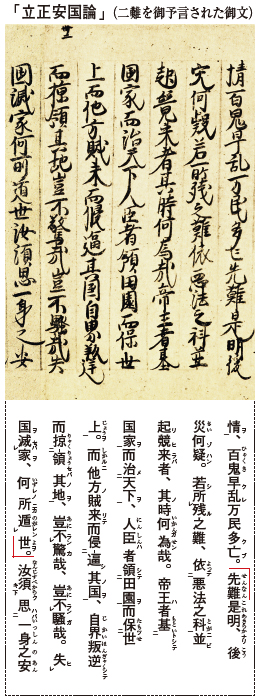 「立正安国論」(二難を御予言された御文)
情百鬼早乱万民多亡先難是明後
災何疑若所残之難依悪法之科並
起競来者其時何為哉帝王者基
国家而治天下人臣者領田園而保世
上而他方賊来而侵逼其国自界叛逆
而掠領其地豈不驚哉豈不騒哉失
国滅家何所遁世汝須思一身之安
情、百鬼早乱万民多亡。先難是明、後
災何疑。若所残之難、依悪法之科並
起競来者、其時何為哉。帝王者基
国家而治天下、人臣者領田園而保世
上。而他方賊来而侵逼其国、自界叛逆
而掠領其地、豈不驚哉、豈不騒哉。失
国滅家、何所遁世。汝須思一身之安